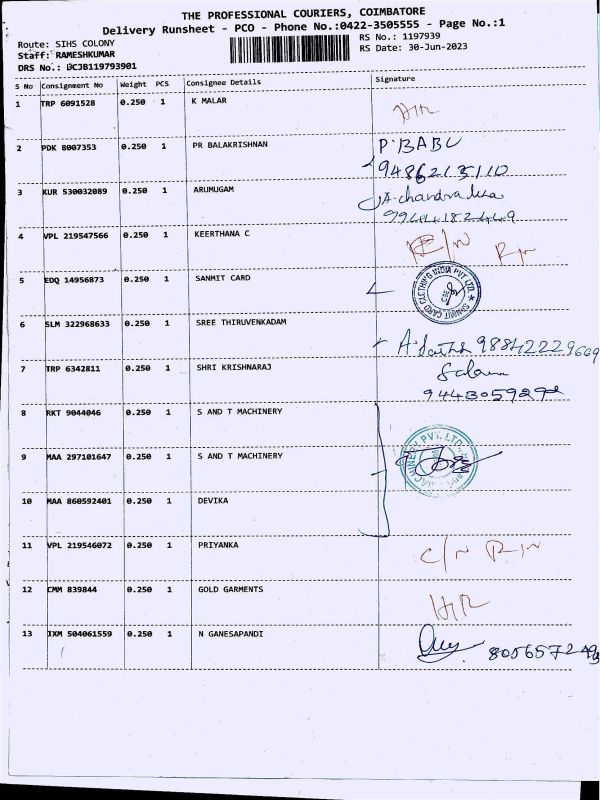 THE PROFESSIONAL COURIERS, COIMBATORE
Delivery Runsheet - PCO - Phone No.:0422-3505555 - Page No.:1
Route: SIHS COLONY
RS No.: 1197939
Staff: RAMESHKUMAR
RS Date: 30-Jun-2023
DRS No.: DCJB119793901
S No Consignment No Weight PCS Consignee Details Signature
1 TRP 6091528 0.250 1 K MALAR
2 PDK 8007353 0.250 1 PR BALAKRISHNAN P. BABU
9486213110
3 KUR 530032089 0.250 1 ARUMUGAM
9944182449
4 VPL 219547566 0.250 1 KEERTHANA C
5 EDQ 14956873 0.250 1 SANMIT CARD
SANMIT CARD CLOTHING INDIA PVT LTD.
6 SLM 322968633 0.250 1 SREE THIRUVENKADAM
7 TRP 6342811 0.250 1 SHRI KRISHNARAJ
8 RKT 9044046 0.250 1 S AND T MACHINERY
9 MAA 297101647 0.250 1 S AND T MACHINERY
MACHINERY PVT. LTD.
10 MAA 860592401 0.250 1 DEVIKA
11 VPL 219546072 0.250 1 PRIYANKA
12 CMM 839844 0.250 1 GOLD GARMENTS
13 IXM 504061559 0.250 1 N GANESAPANDI